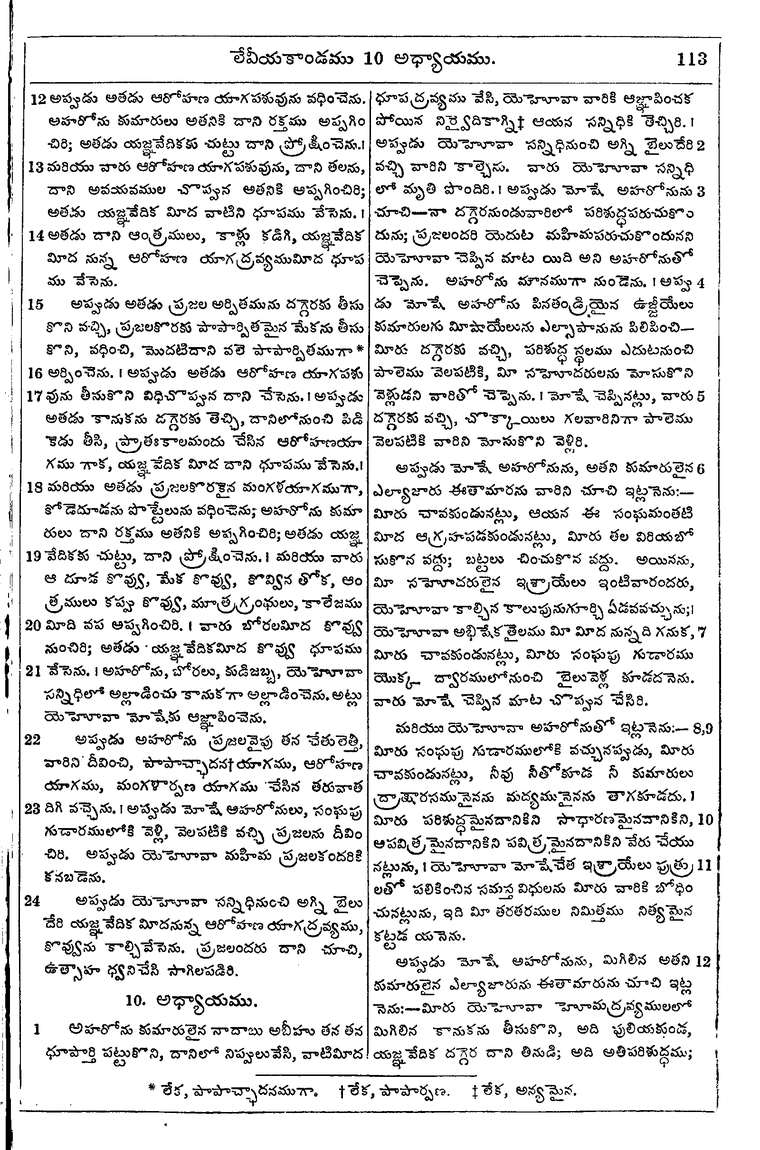 లేవీయకాండము 10 అధ్యాయము. 113
12 అప్పుడు అతడు ఆరోహణ యాగపశువును వధించెను.
అహరోను కుమారులు అతనికి దాని రక్తము అప్పగిం
చిరి; అతడు యజ్ఞవేదికకు చుట్టు దాని ప్రోక్షించెను.।
13 మరియు వారు ఆరోహణ యాగపశువును, దాని తలను,
దాని అవయవముల చొప్పున అతనికి అప్పగించిరి;
అతడు యజ్ఞవేదిక మీద వాటిని ధూపము వేసెను. ।
14 అతడు దాని ఆంత్రములు, కాళ్లు కడిగి, యజ్ఞవేదిక
మీద నున్న ఆరోహణ యాగద్రవ్యముమీద ధూప
ము వేసెను.
15 అప్పుడు అతడు ప్రజల అర్పితమును దగ్గెరకు తీసు
కొని వచ్చి, ప్రజలకొరకు పాపార్పితమైన మేకను తీసు
కొని, వధించి, మొదటిదాని వలె పాపార్పితముగా*
16 అర్పించెను. । అప్పుడు అతడు ఆరోహణ యాగపశు
17 వును తీసుకొని విధిచొప్పున దాని చేసెను. । అప్పుడు
అతడు కానుకను దగ్గెరకు తెచ్చి, దానిలోనుంచి పిడి
కెడు తీసి, ప్రాతఃకాలమందు చేసిన ఆరోహణయా
గము గాక, యజ్ఞవేదిక మీద దాని ధూపము వేసెను.।
18 మరియు అతడు ప్రజలకొరకైన మంగళయాగముగా,
కోడెదూడను పొట్టేలును వధించెను; అహరోను కుమా
రులు దాని రక్తము అతనికి అప్పగించిరి; అతడు యజ్ఞ
19 వేదికకు చుట్టు, దాని ప్రోక్షించెను. । మరియు వారు
ఆ దూడ కొవ్వు, మేక కొవ్వు, కొవ్విన తోక, ఆం
త్రములు కప్పు కొవ్వు, మూత్రగ్రంథులు, కాలేజము
20 మీది వప అప్పగించిరి. । వారు బోరలమీద కొవ్వు
నుంచిరి; అతడు యజ్ఞవేదికమీద కొవ్వు ధూపము
21 వేసెను. । అహరోను, బోరలు, కుడిజబ్బ, యెహోవా
సన్నిధిలో అల్లాడించు కానుకగా అల్లాడించెను. అట్లు
యెహోవా మోషేకు ఆజ్ఞాపించెను.
22 అప్పుడు అహరోను ప్రజలవైపు తన చేతులెత్తి,
వారిని దీవించి, పాపాచ్ఛాదన†యాగము, ఆరోహణ
యాగము, మంగళార్పణ యాగము చేసిన తరువాత
23 దిగి వచ్చెను. । అప్పుడు మోషే ఆహరోనులు, సంఘపు
గుడారములోకి వెళ్లి, వెలపటికి వచ్చి ప్రజలను దీవిం
చిరి. అప్పుడు యెహోవా మహిమ ప్రజలకందరికి
కనబడెను.
24 అప్పుడు యెహోవా సన్నిధినుంచి అగ్ని బైలు
దేరి యజ్ఞవేదిక మీదనున్న ఆరోహణ యాగద్రవ్యము,
కొవ్వును కాల్చివేసెను. ప్రజలందరు దాని చూచి,
ఉత్సాహ ధ్వనిచేసి సాగిలపడిరి.
10. అధ్యాయము.
1 అహరోను కుమారులైన నాదాబు అబీహు తన తన
ధూపార్తి పట్టుకొని, దానిలో నిప్పులువేసి, వాటిమీద
ధూపద్రవ్యము వేసి, యెహోవా వారికి ఆజ్ఞాపించక
పోయిన నిర్వైదికాగ్ని‡ ఆయన సన్నిధికి తెచ్చిరి. ।
అప్పుడు యెహోవా సన్నిధినుంచి అగ్ని బైలుదేరి 2
వచ్చి వారిని కాల్చెను. వారు యెహోవా సన్నిధి
లో మృతి పొందిరి. । అప్పుడు మోషే అహరోనును 3
చూచి—నా దగ్గెరనుండువారిలో పరిశుద్ధపరుచుకొం
దును; ప్రజలందరి యెదుట మహిమపరుచుకొందునని
యెహోవా చెప్పిన మాట యిది అని అహరోనుతో
చెప్పెను. అహరోను మౌనముగా నుండెను. । అప్పు 4
డు మోషే అహరోను పినతండ్రియైన ఉజ్జీయేలు
కుమారులను మీషాయేలును ఎల్సాపానును పిలిపించి—
మీరు దగ్గెరకు వచ్చి, పరిశుద్ధ స్థలము ఎదుటనుంచి
పాలెము వెలపటికి, మీ సహోదరులను మోసుకొని
వెళ్లుడని వారితో చెప్పెను. । మోషే చెప్పినట్లు, వారు 5
దగ్గెరకు వచ్చి, చొక్కాయిలు గలవారినిగా పాలెము
వెలపటికి వారిని మోసుకొని వెళ్లిరి.
అప్పుడు మోషే అహరోనును, అతని కుమారులైన 6
ఎల్యాజారు ఈతామారను వారిని చూచి ఇట్లనెను:—
మీరు చావకుండునట్లు, ఆయన ఈ సంఘమంతటి
మీద ఆగ్రహపడకుండునట్లు, మీరు తల విరియబో
సుకొన వద్దు; బట్టలు చించుకొన వద్దు. అయినను,
మీ సహోదరులైన ఇశ్రాయేలు ఇంటివారందరు,
యెహోవా కాల్చిన కాలుపునుగూర్చి ఏడవవచ్చును;।
యెహోవా అభిషేకతైలము మీ మీద నున్నది గనుక, 7
మీరు చావకుండునట్లు, మీరు సంఘపు గుడారము
యొక్క ద్వారములోనుంచి బైలువెళ్ల కూడదనెను.
వారు మోషే చెప్పిన మాట చొప్పున చేసిరి.
మరియు యెహోవా అహరోనుతో ఇట్లనెను:— 8,9
మీరు సంఘపు గుడారములోకి వచ్చునప్పుడు, మీరు
చావకుండునట్లు, నీవు నీతోకూడ నీ కుమారులు
ద్రాక్షారసమునైనను మద్యమునైనను తాగకూడదు. ।
మీరు పరిశుద్ధమైనదానికిని సాధారణమైనవానికిని, 10
అపవిత్రమైనదానికిని పవిత్రమైనదానికిని వేరు చేయు
నట్లును, । యెహోవా మోషేచేత ఇశ్రాయేలు పుత్రు 11
లతో పలికించిన సమస్త విధులను మీరు వారికి బోధిం
చునట్లును, ఇది మీ తరతరముల నిమిత్తము నిత్యమైన
కట్టడ యనెను.
అప్పుడు మోషే అహరోనును, మిగిలిన అతని 12
కుమారులైన ఎల్యాజారును ఈతామారును చూచి ఇట్ల
నెను:—మీరు యెహోవా హోమద్రవ్యములలో
మిగిలిన కానుకను తీసుకొని, అది పులియకుండ,
యజ్ఞవేదిక దగ్గెర దాని తినుడి; అది అతిపరిశుద్ధము;
* లేక, పాపాచ్ఛాదనముగా. † లేక, పాపార్పణ. ‡ లేక, అన్యమైన.